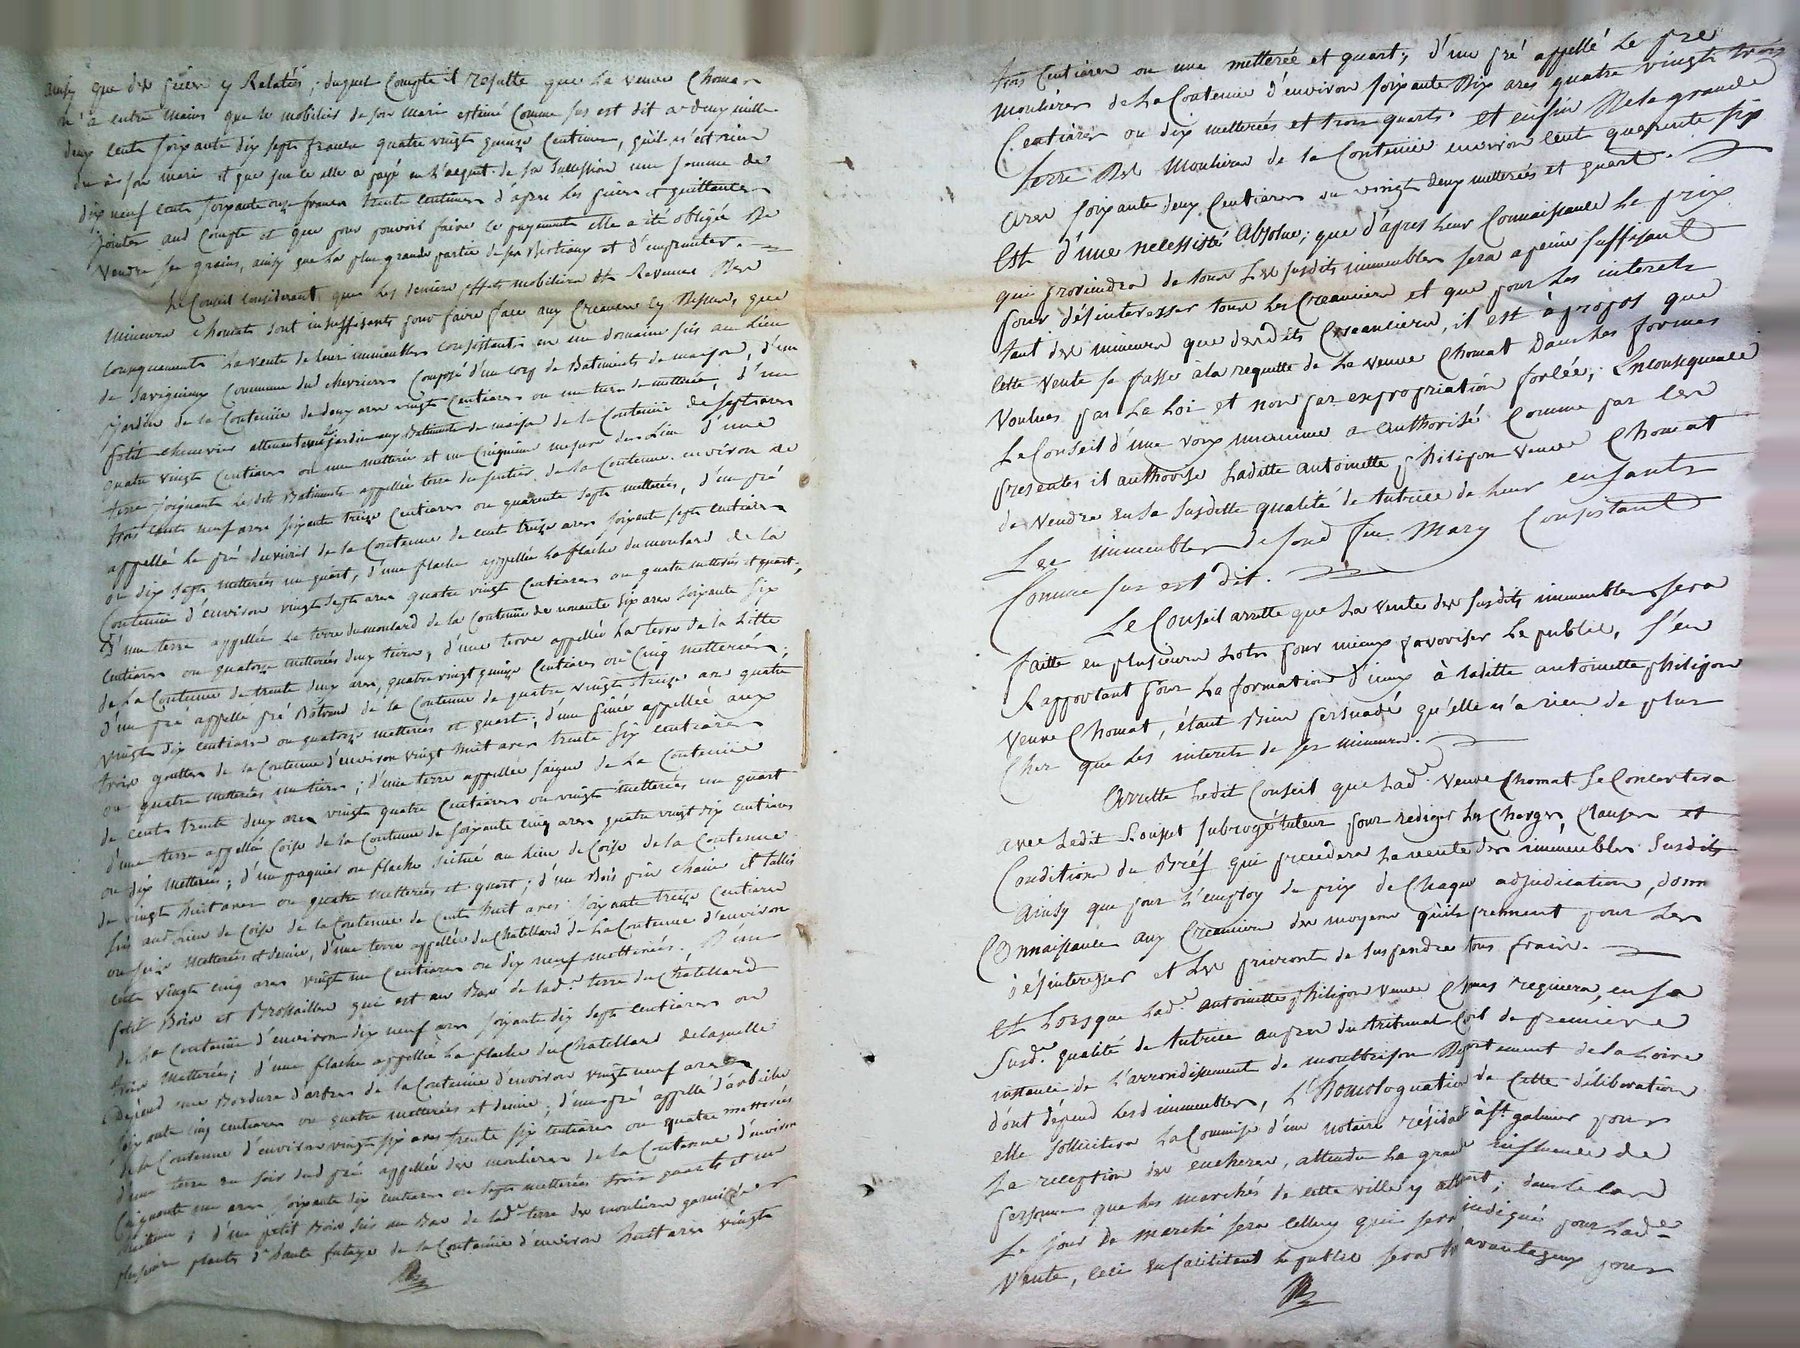 ainsy que des pièces y Relatés; duquel Compte il resulte que la veuve Chomat
n'a entre mains que le mobilier de son mari estimé Comme sus est dit a deux mille
deux cents soixante dix sept francs quatre vingt quinze Centimes, qu'il n'est rien
du à son mari et que sur ce elle a payé en l'acquit de sa succession une somme de
dix neuf cents soixante onze francs trente centimes d'après les pièces et quittances
jointes aud Compte et que pour pouvoir faire ce payement elle a été obligée de
vendre ses grains, ainsy que la plus grande partie de ses Bestiaux et d'emprunter.
Le Conseil considerant que les deniers effets mobiliers et Revenus des
mineurs Chomat sont insuffisants pour faire face aux Creances cy dessus, que
consequament la vente de leurs immeubles consistants en un domaine sis au lieu
de Savigneux Commune de Chevrieres Composé d'un corps de Batiments de maison, d'un
jardin de la Contenüe de deux ares vingt Centiares ou un tiers de metterée; d'une
petit chenevier attenant jardin aux Batiments de maison de la Contenüe de sept ares
quatre vingt Centiares ou une metterée et un Cinquieme mesure du Lieu d'une
terre joignant lesdits Batiments appellée terre du sentier de la Contenue environ de
trois cents neuf ares soixante treize Centiares ou quarante sept metterées, d'un pré
appellé le pré de la Contenue de cent treize ares soixante sept centiares
ou dix sept metterées un quart, d'une flache appellée la flache du moulard de la
Contenüe d'environ vingt sept ares quatre vingt Centiares ou quatre metterées et quart,
d'une terre appellée la terre du moulard de la Contenüe de nonante six ares soixante six
Centiares ou quatorze metterées deux tiers, d'une terre appellée la terre de la Litte
de la Contenue de trente deux ares, quatre vingt quinze Centiares ou Cinq metterées;
d'un pré appellé pré Bertrand de la Contenue de quatre vingt treize ares quatre
vingt dix centiares ou quatorze metterées et quart; d'une pinée appellée aux
trois gouttes de la Contenue d'environ vingt huit ares trente six centiares
ou quatre metterées un tiers; d'une terre appellée saigne de la Contenüe
de cent trente deux ares vingt quatre Centiares ou vingt metterées un quart
d'une terre appellée Coise de la Contenue de soixante cinq ares quatre vingt dix centiares
ou dix metterées; d'un paquier ou flache situé au lieu de Coise de la Contenue
de vingt huit ares ou quatre metterées et quart; d'un Bois pin chaine et tallis
sis aud lieu de Coise de la Contenue de Cent huit ares soixante treize Centiares
ou seize metterées et demie, d'une terre appellée du Chatellard de la Contenue d'environ
cent vingt cinq ares vingt un Centiares ou dix neuf metterées. d'un
petit Bois et Brossailles qui est au Bas de lade terre du Chatellard
de la Contenüe d'environ dix neuf ares soixante dix sept centiares ou
trois metterées; d'une flache appellée la flache du Chatellard de laquelle
dépend une Bordure d'arbres de la Contenüe d'environ vingt neuf ares
soixante cinq centiares ou quatre metterées et demie; d'un pré appellé
de la Contenue d'environ vingt six ares trente six centiares ou quatre metterées
d'une terre au soir dud pré appellée des moulieres de la Contenue d'environ
Cinquante un ares soixante dix centiares ou sept metterées trois quarts et un
huitieme; d'un petit Bois sis au Bas de lade terre des moulieres garni de
plusieurs plants d'haute futaye de la Contenüe d'environ huit ares vingt
trois Centiares ou une metterée et quart; d'un pré appellé le pré
moulieres de la Contenüe d'environ soixante Dix ares quatre vingt trois
Centiares ou dix metterées et trois quarts. et enfin de la grande
terre des Moulieres de la Contenüe environ Cent quarante six
ares soixante deux Centiares ou vingt deux metterées et quart.
Est d'une necessitté absolue; que d'apres leur Connaissance le prix
qui proviendra de tous les susdits immeubles sera a peine suffisant
pour désinteresser tous les Creanciers et que pour les interets
tant des mineurs que desdits Creanciers, il est à propos que
cette vente se passe à la requette de la veuve Chomat dans les formes
voulues par la Loi et non par expropriation forcée; En consequence
Le Conseil d'une voix unanime a authorisé Comme par les
presentes il authorise Laditte antoinette philipon veuve Chomat
de vendre en sa susditte qualité de tutrice de leurs enfants
Les immeubles de fond feu Mary Consistant
Comme sus est dit.
Le Conseil arrette que la vente des susdits immeubles sera
faitte en plusieurs Lots pour mieux favoriser le public, s'en
Rapportant pour la formation d'iceux à laditte antoinette philipon
veuve Chomat, étant Bien persuadé qu'elle n'a rien de plus
Cher que les interets de ses mineurs.
Arrette ledit Conseil que lade veuve Chomat se Concertera
avec ledit Soupet subrogé tuteur pour rediger les Charges, Clauses et
Condition du Bref qui precedera la vente des immeubles susdits
ainsy que pour l'employ du prix de Chaque adjudication, donn
Connaissance aux Creanciers des moyens qu'ils prennent pour les
désinteresser et les prieront de suspendre tous fraix.
Et Lorsque lade antoinette philipon veuve requiera, en sa
susde qualité de tutrice aupres du tribunal de premiere
instance de l'arrondissement de montbrison Departement de la Loire
dont dépend lesd immeubles, L'homologuation de Cette déliberation
elle sollicitera la Commise d'un notaire résidant à St galmier pour
la reception des encheres, attendu la grande influence de
personne que les marchés de cette ville y attire; dans le cas
le jour de marché sera celluy qui sera indiqué pour lade
vente, ceci en facilitant le public sera avantageux pour